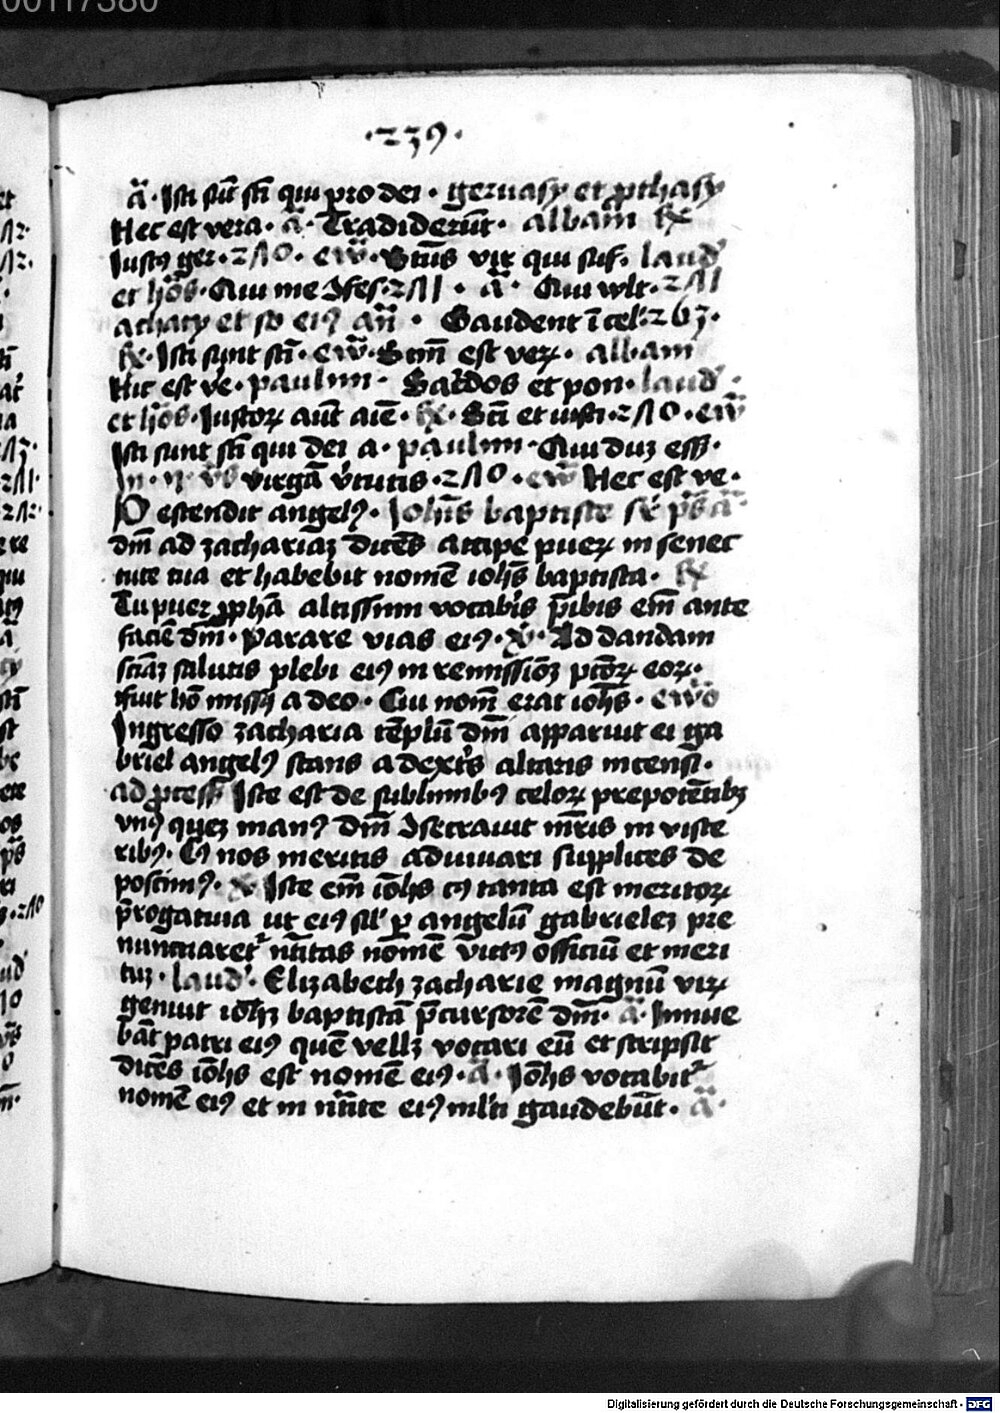 ·239·
a᷃· Isti su᷃t s᷃ti qui pro dei · geruasy et ꝓthasy
Hec est vera · a᷃· Tradideru᷃t · albani ℟
Iustꝰ ger · 210 · ew᷃ · St᷃us vir qui suf· laud
et ho᷃s · Qui me ꝯfes· 211 · a᷃· Qui wlt · 211
achacy et so eiꝰ an᷃ · Gaudent i᷃ cel· 263·
℟ · Isti sunt st᷃i · ew᷃ · St᷃m est veꝝ · albani
Hic est ve · paulini · Sac᷃dos et pon · laud ·
et ho᷃s · Iustoꝝ au᷃t aie᷃ · ℟ · Sc᷃ti et iusti · 210 · ew᷃
Isti sunt st᷃i qui dei a · paulini · Qui duz ess·
In · n · v᷃s virga᷃ v᷃tutis · 210 · ew᷃ Hec est ve ·
Ostendit angelꝰ · Ioh᷃is baptiste s᷃r p᷃s a᷃·
dn᷃i ad zachariaz dice᷃s accipe pueꝝ in senec
tute tua et habebit nome᷃ ioh᷃s baptista · ℟
Tu puer ꝓpha᷃ altissimi vocab᷃is p᷃ibis em᷃ ante
facie᷃ dn᷃i · parare vias eiꝰ · ℣ · Ad dandam
scia᷃z salutis plebi eiꝰ in remissio᷃z pctoꝝ eoꝝ ·
ffuit ho᷃ missꝰ a deo · Cui nom᷃ erat ioh᷃s · ew᷃o
Ingresso zacharia te᷃plu᷃ dn᷃i apparuit ei ga
briel angelꝰ stans a dext᷃s altaris incensi ·
ad ꝓcess᷃ Iste est de sublimibꝰ celoꝝ prepote᷃tibꝫ
vnꝰ quez manꝰ dn᷃i ꝯsecrauit m᷃ris in visce
ribꝰ · Cꝰ nos meritis adiuuari supplices de
poscimꝰ · ℣ Iste em᷃ ioh᷃s cꝰ tanta est meritoꝝ
p᷃rogatiua ut eiꝰ sil᷃ ꝑ angelu᷃ gabrielez pre
nunctiaret᷑ n᷃titas nome᷃ victꝰ officiu᷃ et meri
tuz · laud · Elizabeth zacharie magnu᷃ viꝝ
genuit ioh᷃ez baptista᷃ p᷃cursore᷃ dn᷃i · a᷃ · Innue
ba᷃t patri eiꝰ que᷃ vellꝫ vocari eu᷃ et scripsit
dice᷃s ioh᷃s est nome᷃ eiꝰ · a᷃ · Ioh᷃s vocabit᷑
nome᷃ eiꝰ et in n᷃tite eiꝰ ml᷃ti gaudebu᷃t · a᷃·
Digitalisierung gefördert durch die Deutsche Forschungsgemeinschaft · DFG